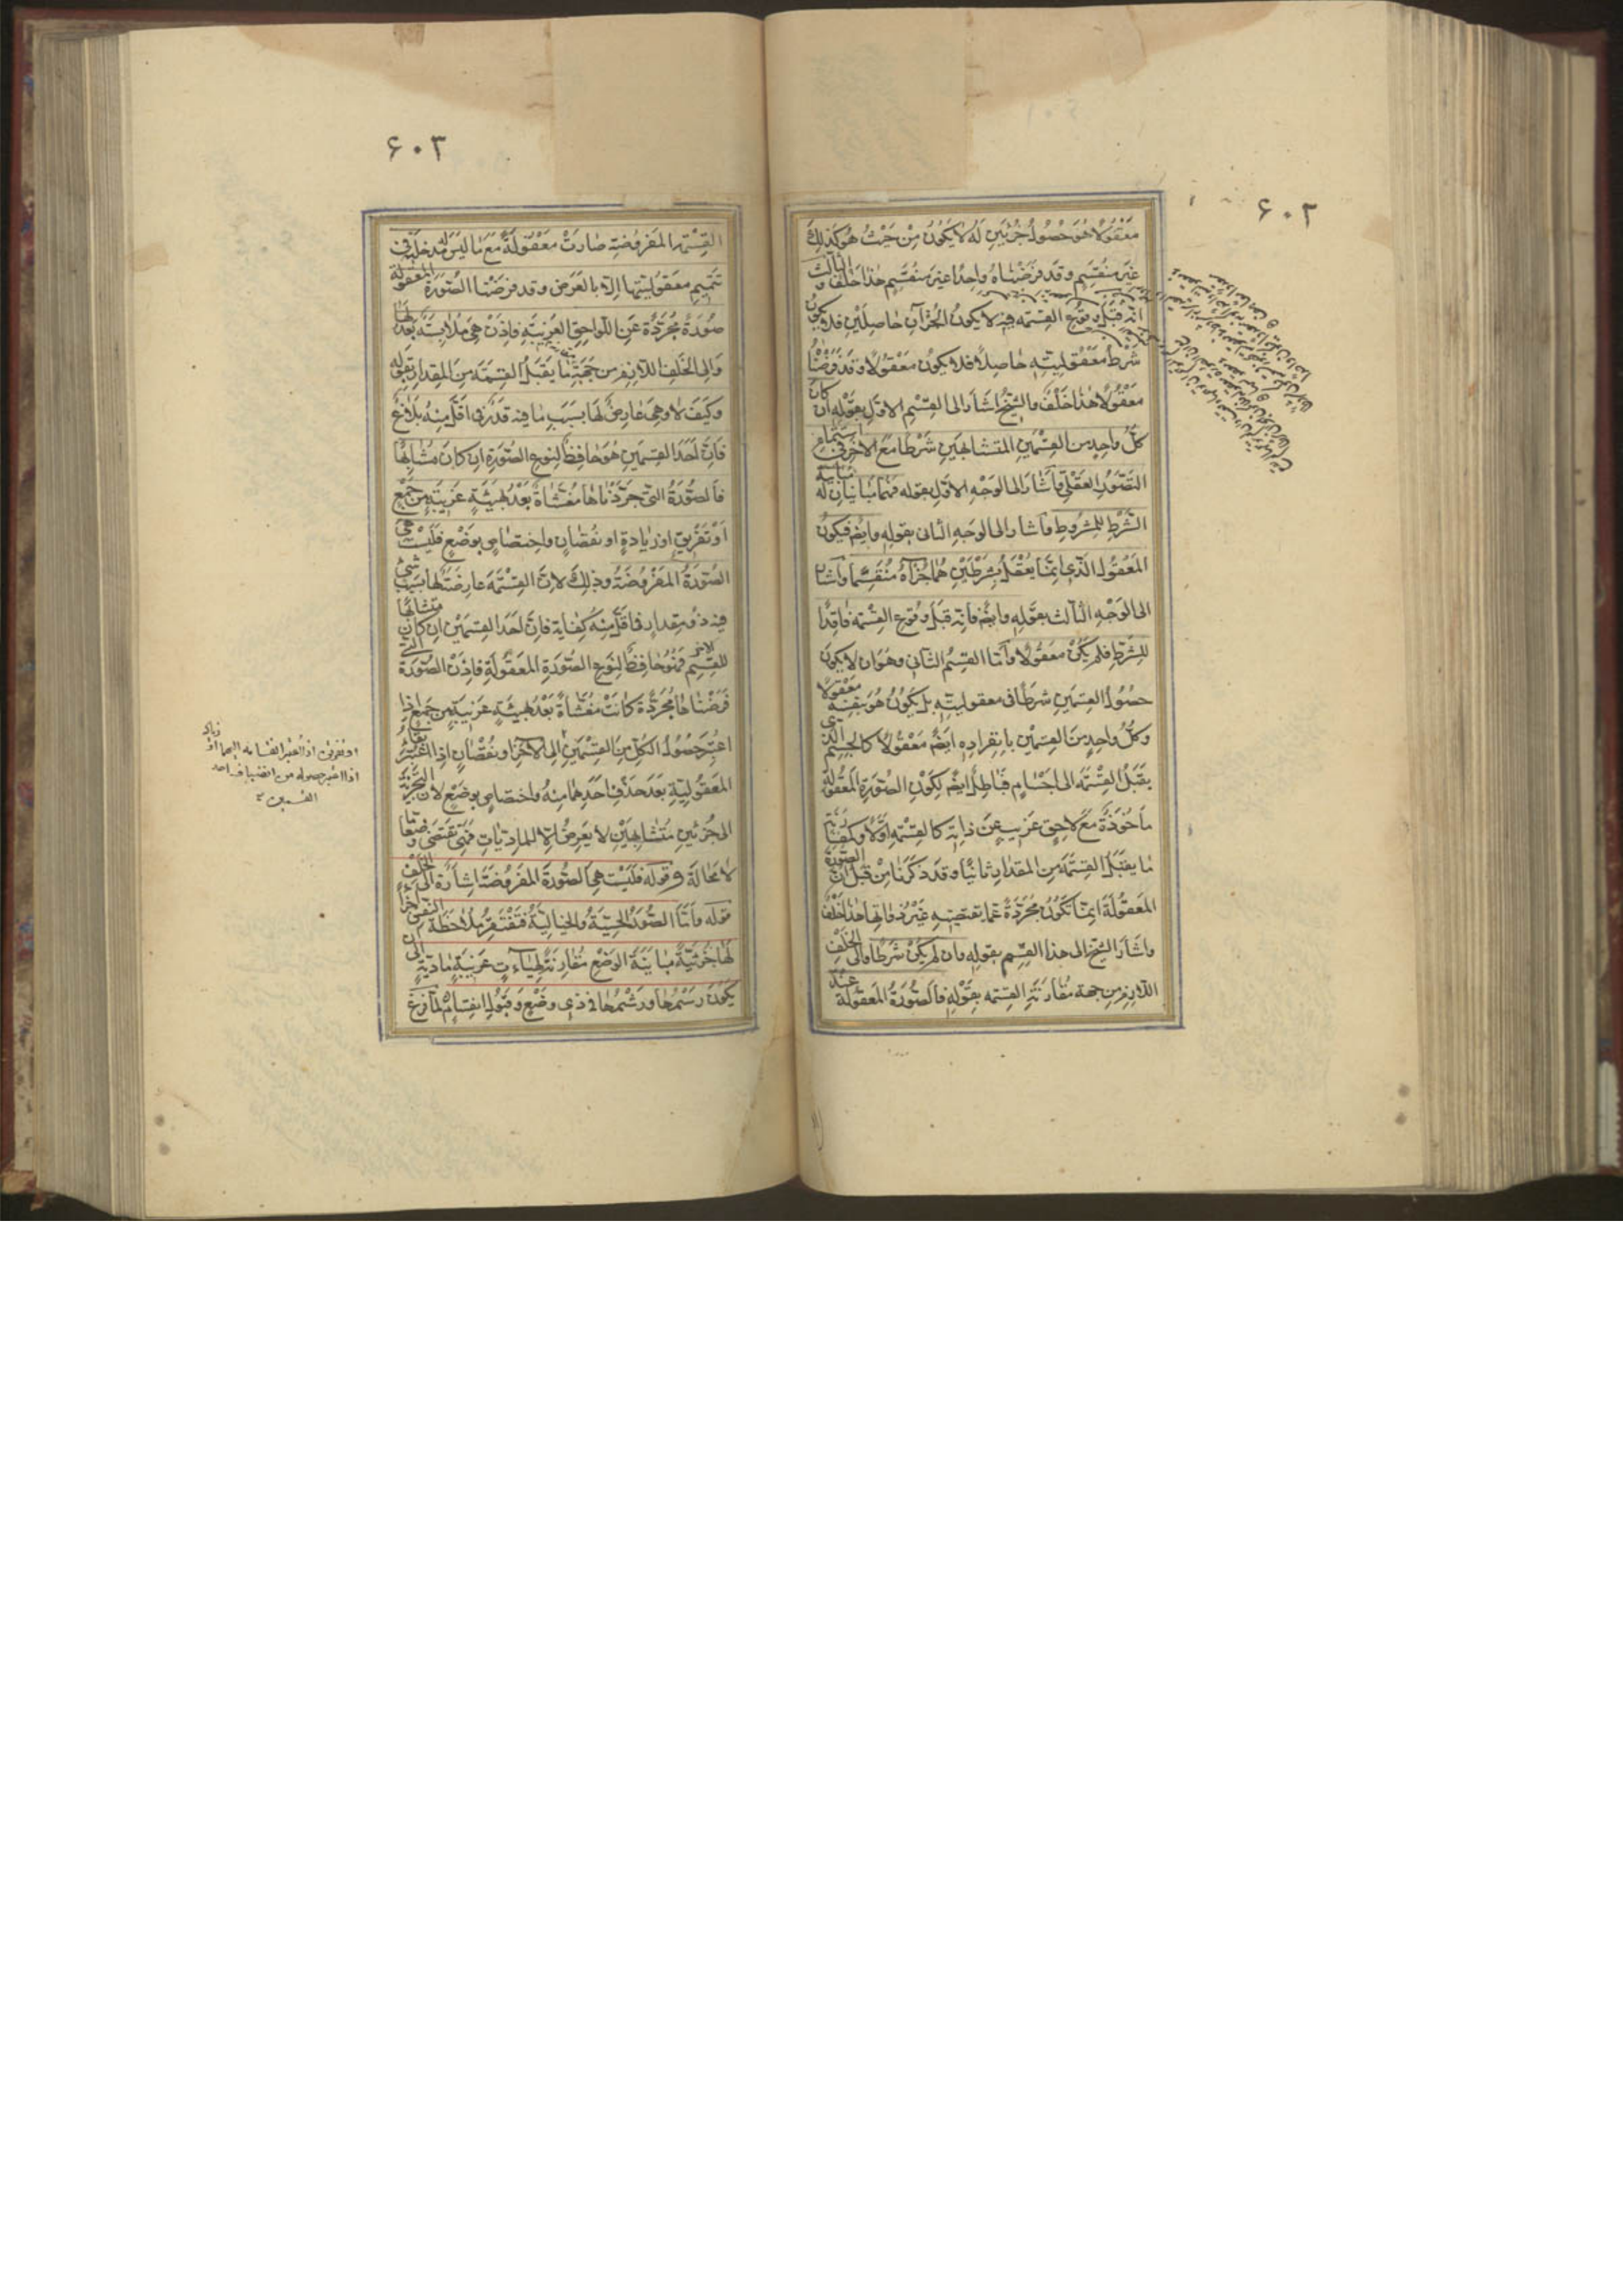 ۶۰۲
معقولا هو حصول جزئين له لا يكون من حيث هو كذلك
غير منقسم وقد فرضناه واحدا غير منقسم هذا خلف والثالث
انه قبل وقوع القسمه فيه لا يكون الجزآن حاصلين فلا يكون
شرط معقوليته حاصلا فلا يكون معقولا وقد فرضناه
معقولا هذا خلف والشيخ اشار الى القسم الاول بقوله ان كان
كل واحد من القسمين المتشابهين شرطا مع الاخر في استتمام
التصور العقلي فاشار الى الوجه الاول بقوله فهما مباينان له مباينة
الشرط للمشروط واشار الى الوجه الثاني بقوله وايضم فيكون
المعقول الذي انما يعقل بشرطين هما جزآه منقسما واشار
الى الوجه الثالث بقوله وايضم فانه قبل وقوع القسمه فاقدا
للشرط فلم يكن معقولا واما القسم الثاني وهو ان لا يكون
حصول القسمين شرطا في معقوليته بل يكون هو بنفسه معقولا
وكل واحد من القسمين بانفراده ايضم معقولا كالجسم الذي
يقبل القسمة الى اجسام فباطل ايضم لكون الصورة المعقولة
ماخوذة مع لاحق غريب عن ذاته كالقسمه اولا وكمقارنة
ما يقبل القسمة من المقدار ثانيا وقد ذكرنا من قبل ان الصورة
المعقولة انما تكون مجردة عما يقتضيه غير ذواتها هذا خلف
واشار الشيخ الى هذا القسم بقوله وان لم يكن شرطا والى الخلف
اللازم من جهة مقارنة القسمه بقوله فالصورة المعقولة عند
۶۰۳
القسمة المفروضة صارت معقولة مع ما ليس له مدخل في
تتميم معقوليتها الا بالعرض وقد فرضنا الصورة المعقولة
صورة مجردة عن اللواحق الغريبة فاذن هي ملابسة بعد لها
والى الخلف اللازم من جهة ما يقبل القسمة من المقدار بقوله
وكيف لا وهي عارض لها بسبب ما فيه قدر في اقل منه بلاغ
فان احد القسمين هو حافظ لنوع الصورة ان كان متشابها
فالصورة التي جردناها مغشاة بعد بهيئة غريبة من جمع
او تفريق او زيادة او نقصان واختصاص بوضع فليست هي
الصورة المفروضة وذلك لان القسمة عارضة لها بسبب شئ
فيه ذو مقدار في اقل منه كفاية فان احد القسمين ان كان متشابها
للقسم الاخر فهو حافظ لنوع الصورة المعقولة فاذن الصورة التي
فرضناها مجردة كانت مغشاة بعد بهيئة غريبة من جمع اذا
اعتبر حصول الكل من القسمين الى الاخر او نقصان اذا اعتبر بقاء
المعقولية بعد حذف احدهما منه واختصاص بوضع لان التجزئة
الى جزئين متشابهين لا يعرض الا للماديات فهي تقتضى وضعا ما
لا محالة وقوله فليست هي الصورة المفروضة اشارة الى الخلف
قوله واما الصور الحسية والخيالية فتفتقر ملاحظة النفس اجزاء
لها جزئية مباينة الوضع مقارنة لهيآت غريبة مادية الى ان
يكون رسمها ورشمها في ذي وضع وقبول انقسام لما فرغ
او تفريق اذا اعتبر انقسامه اليهما او زيادة
اذا اعتبر حصوله من انضياف احد
القسمين